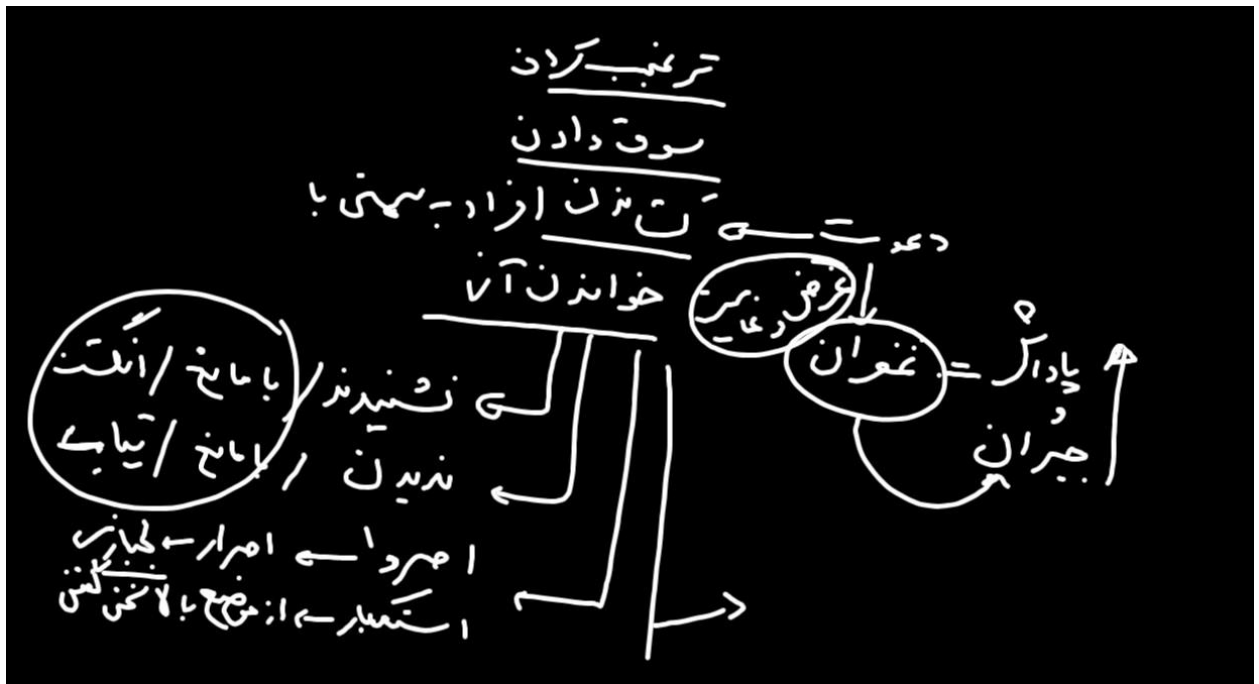 ترغیب کردن
سوق دادن
دعوت ← کَشاندن افراد به سمتی با
خواندن آن
غرض پیامبر
غفران = پاداش
و
جبران
نشنیدند / با مانع / انگشت
ندیدن / با مانع / ثیاب
اصروا ← اصرار ← لجبازی
استکبار ← از موضع بالا سخن گفتن